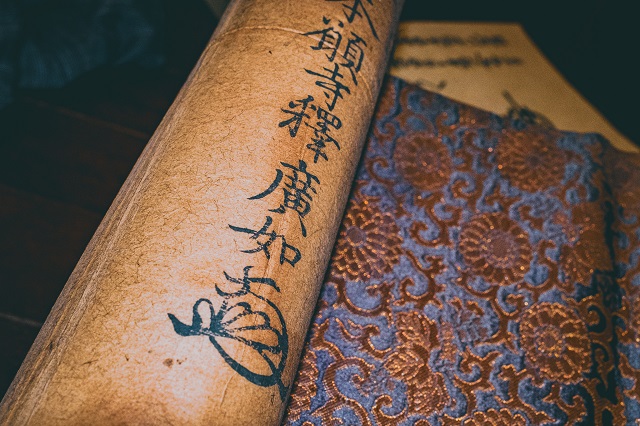 本願寺釋廣如